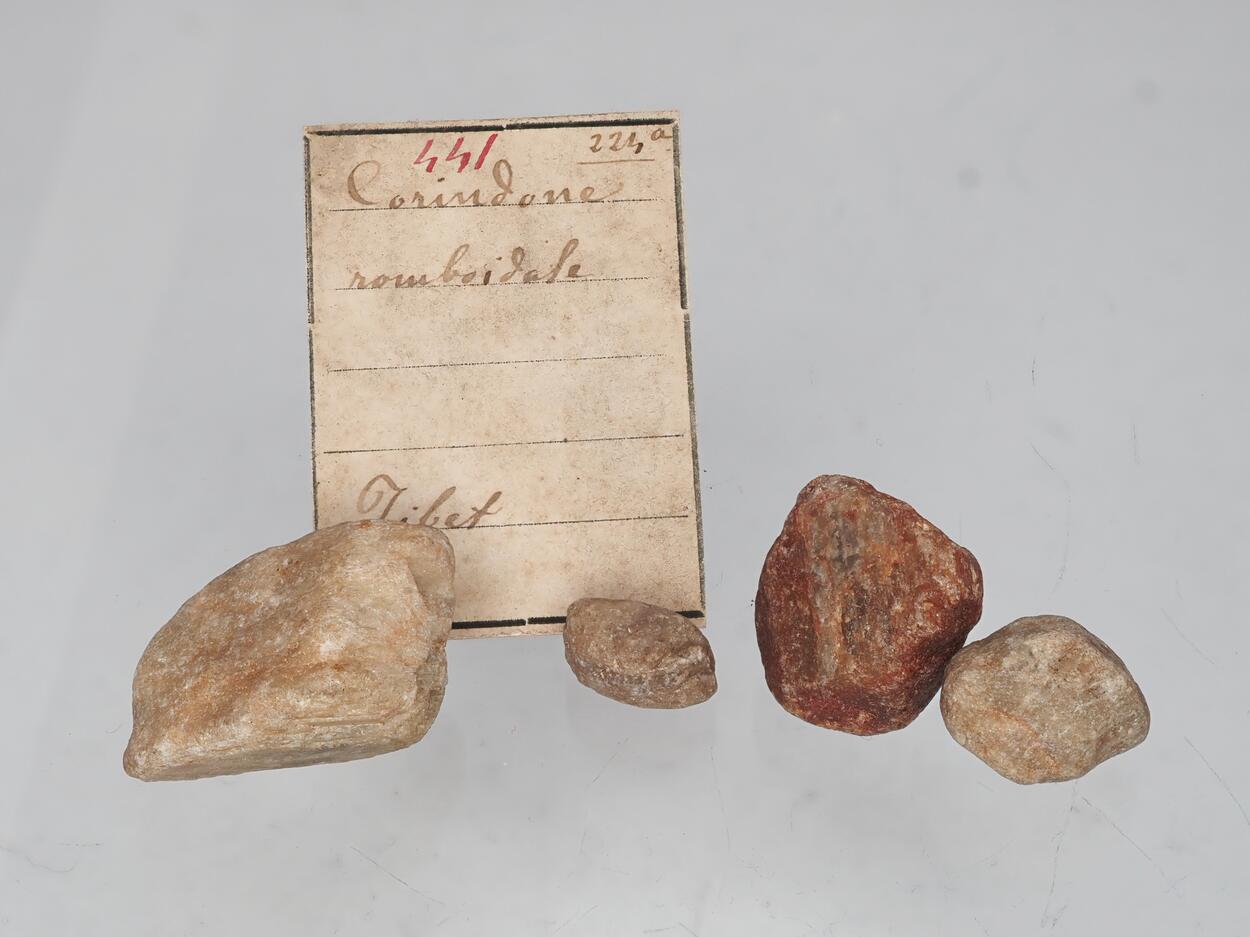 441 224a
Corindone
romboidale
Tibet